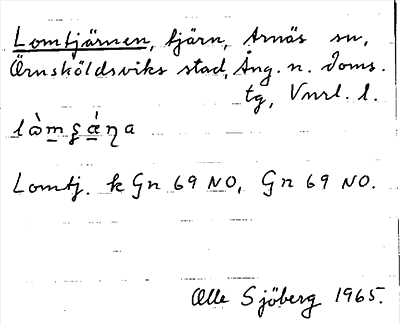 Lomtjärnen, tjärn, Arnäs sn,
Örnsköldsviks stad, Ång. n. Doms.
tg, Vnrl. l.
Lomtj. k Gn 69 NO, Gn 69 NO.
Olle Sjöberg 1965.